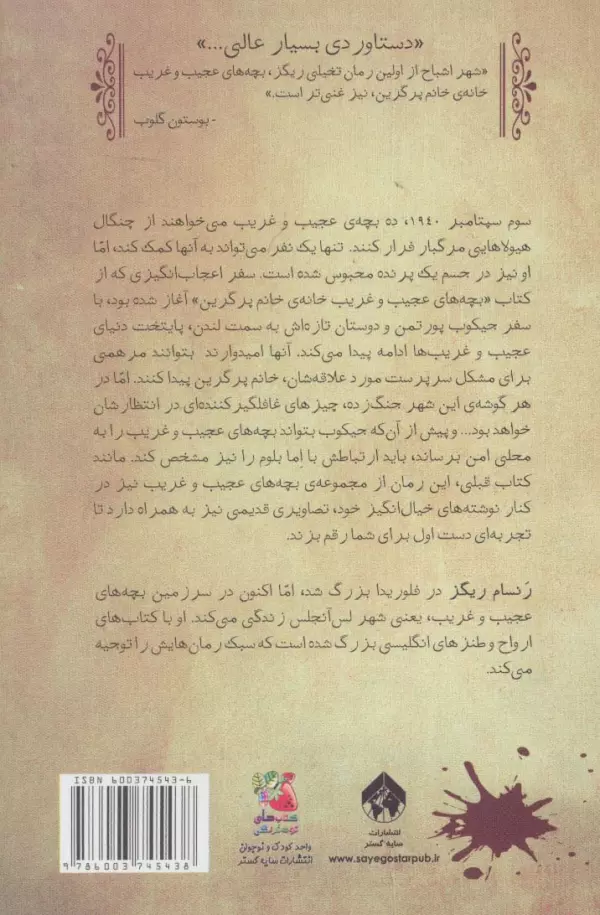 «دستاوردی بسیار عالی...»
«شهر اشباح از اولین رمان تخیلی ریگز، بچه‌های عجیب و غریب
خانه‌ی خانم پرگرین، نیز غنی‌تر است.»
- بوستون گلوب
سوم سپتامبر ۱۹۴۰، ده بچه‌ی عجیب و غریب می‌خواهند از چنگال
هیولاهایی مرگبار فرار کنند. تنها یک نفر می‌تواند به آنها کمک کند، امّا
او نیز در جسم یک پرنده محبوس شده است. سفر اعجاب‌انگیزی که از
کتاب «بچه‌های عجیب و غریب خانه‌ی خانم پرگرین» آغاز شده بود، با
سفر جیکوب پورتمن و دوستان تازه‌اش به سمت لندن، پایتخت دنیای
عجیب و غریب‌ها ادامه پیدا می‌کند. آنها امیدوارند بتوانند مرهمی
برای مشکل سرپرست مورد علاقه‌شان، خانم پرگرین پیدا کنند. امّا در
هر گوشه‌ی این شهر جنگ‌زده، چیزهای غافلگیرکننده‌ای در انتظارشان
خواهد بود... و پیش از آن‌که جیکوب بتواند بچه‌های عجیب و غریب را به
محلی امن برساند، باید ارتباطش با اِما بلوم را نیز مشخص کند. مانند
کتاب قبلی، این رمان از مجموعه‌ی بچه‌های عجیب و غریب نیز در
کنار نوشته‌های خیال‌انگیز خود، تصاویری قدیمی نیز به همراه دارد تا
تجربه‌ای دست اول برای شما رقم بزند.
رَنسام ریگز در فلوریدا بزرگ شد، امّا اکنون در سرزمین بچه‌های
عجیب و غریب، یعنی شهر لس‌آنجلس زندگی می‌کند. او با کتاب‌های
ارواح و طنزهای انگلیسی بزرگ شده است که سبک رمان‌هایش را توجیه
می‌کند.
ISBN 600374543-6
9 786003 745438
کتاب‌های
توت‌فرنگی
واحد کودک و نوجوان
انتشارات سایه گستر
انتشارات
سایه گستر
www.sayegostarpub.ir